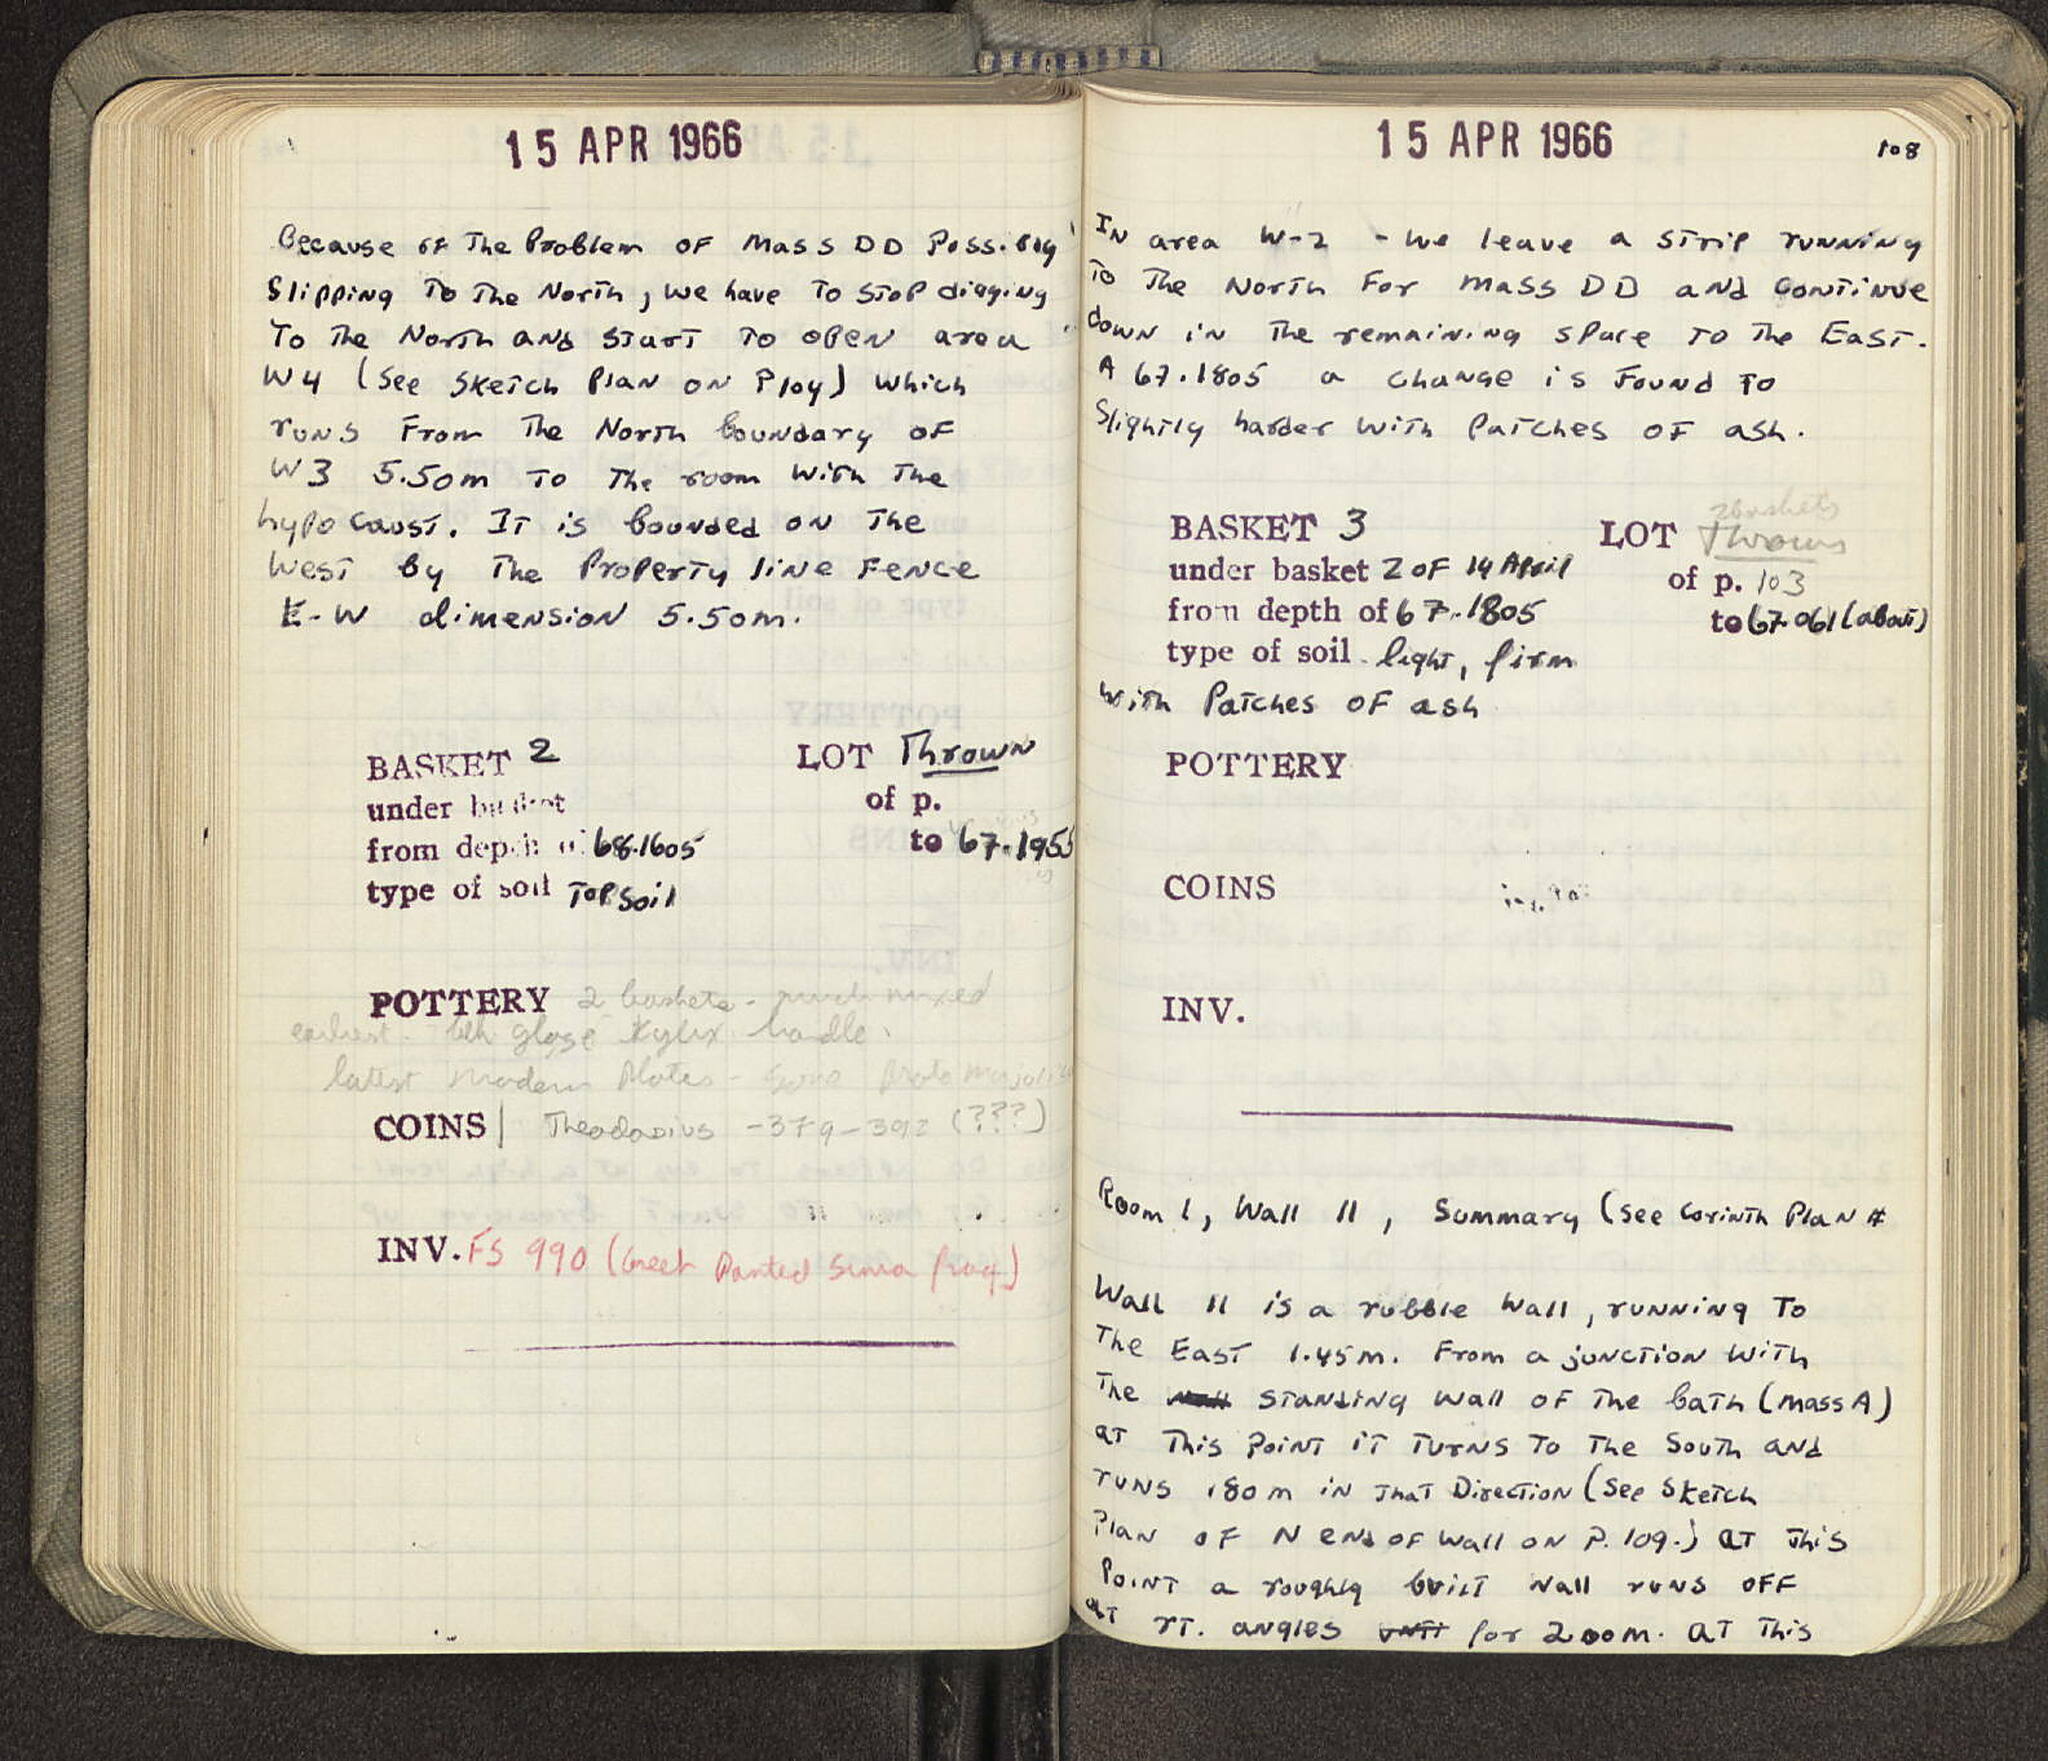 15 APR 1966
Because of The Problem OF Mass DD Possibly
Slipping To The North, we have To stop digging
To The North and start To open area
W4 (see Sketch Plan on P104) which
runs From The North boundary of
W3 5.50m To The room with The
hypocaust. It is bounded on The
West by The Property line Fence
E-W dimension 5.50m.
BASKET 2 LOT Thrown
under basket of p.
from depth of 68.1605 to 67.1955
type of soil Topsoil
POTTERY 2 baskets - much mixed
earliest - blk glaze Kylix handle.
latest Modern Plates - some Proto Majolica
COINS | Theodosius - 379-392 (???)
INV. FS 990 (Greek Painted Sima frag)
15 APR 1966
108
In area W-2 - we leave a strip running
To The North For Mass DD and continue
down in The remaining space To The East.
A 67.1805 a change is Found To
Slightly harder with Patches OF ash.
2 baskets
BASKET 3 LOT Thrown
under basket 2 OF 14 April of p. 103
from depth of 67.1805 to 67.061 (about)
type of soil light, firm
with Patches OF ash
POTTERY
COINS
INV.
Room 1, Wall 11, Summary (see Corinth Plan #
Wall 11 is a rubble wall, running To
The East 1.45m. From a junction with
The standing wall of The bath (Mass A)
at This Point it Turns To The South and
runs .80m in That Direction (See Sketch
Plan OF N end of wall on P. 109.) at This
Point a roughly built wall runs off
at rt. angles until for 2.00m. at This